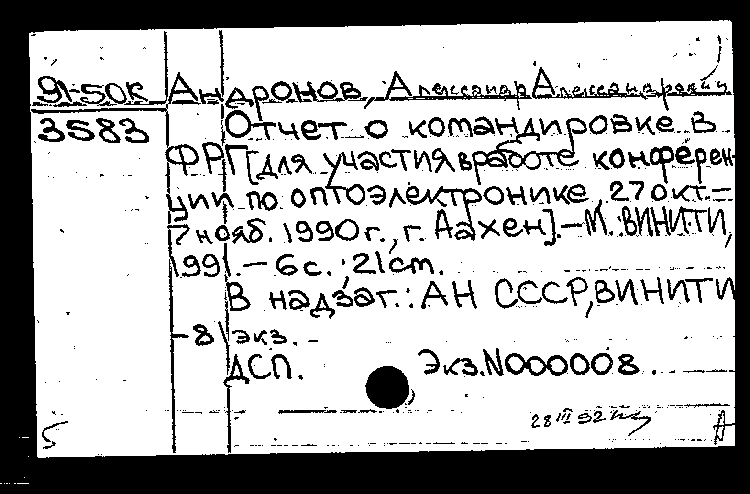 91-50к Андронов, Александр Александрович
3583 Отчет о командировке в
ФРГ [для участия в работе конферен-
ции по оптоэлектронике, 27 окт.-
7 нояб. 1990 г., г. Аахен]. - М.: ВИНИТИ,
1991. - 6 с.; 21 cm.
В надзаг.: АН СССР, ВИНИТИ
-8 экз. -
ДСП. Экз. N000008.
28 III 92
5 А